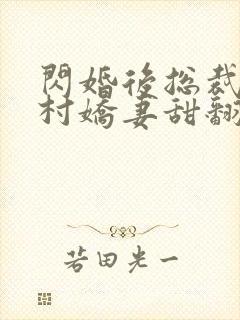 閃婚後总裁
村嬌妻甜翻
若田光一